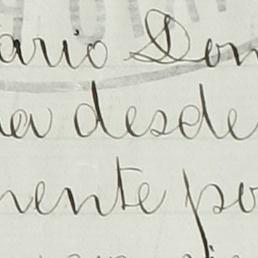 ario Don
a desde
mente po